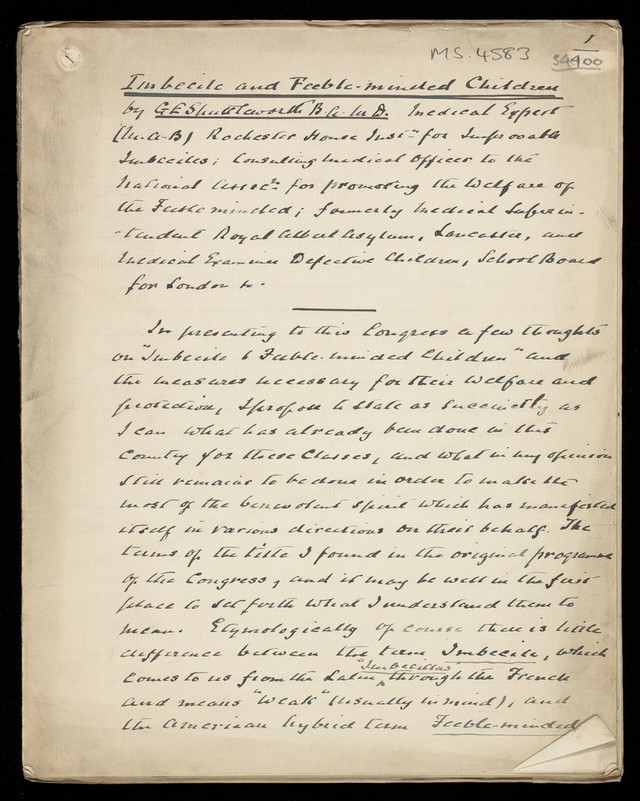 1
MS. 4583
54900
Imbecile and Feeble-minded Children
by G E Shuttleworth B.A. M.D. Medical Expert
(M.A.B) Rochester House Instn for Improvable
Imbeciles; Consulting Medical Officer to the
National Assocn for promoting the Welfare of
the Feeble minded; formerly Medical Superin-
-tendent Royal Albert Asylum, Lancaster, and
Medical Examiner Defective Children, School Board
for London
In presenting to this Congress a few thoughts
on "Imbecile & Feeble-minded Children" and
the measures necessary for their welfare and
protection, I propose to state as succinctly as
I can what has already been done in this
Country for these Classes, and what in my opinion
still remains to be done in order to make the
most of the benevolent spirit which has manifested
itself in various directions on their behalf. The
terms of the title I found in the original programme
of the Congress, and it may be well in the first
place to set forth what I understand them to
mean. Etymologically of course there is little
difference between the term Imbecile, which
comes to us from the Latin "Imbecillus" through the French
and means "weak" (usually in mind), and
the American hybrid term Feeble-minded